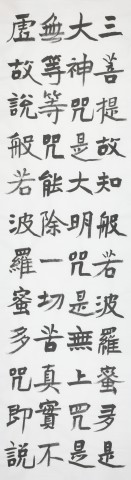 三菩提故知般若波羅蜜多是
大神咒是大明咒是無上咒是
無等等咒能除一切苦真實不
虛故說般若波羅蜜多咒即說